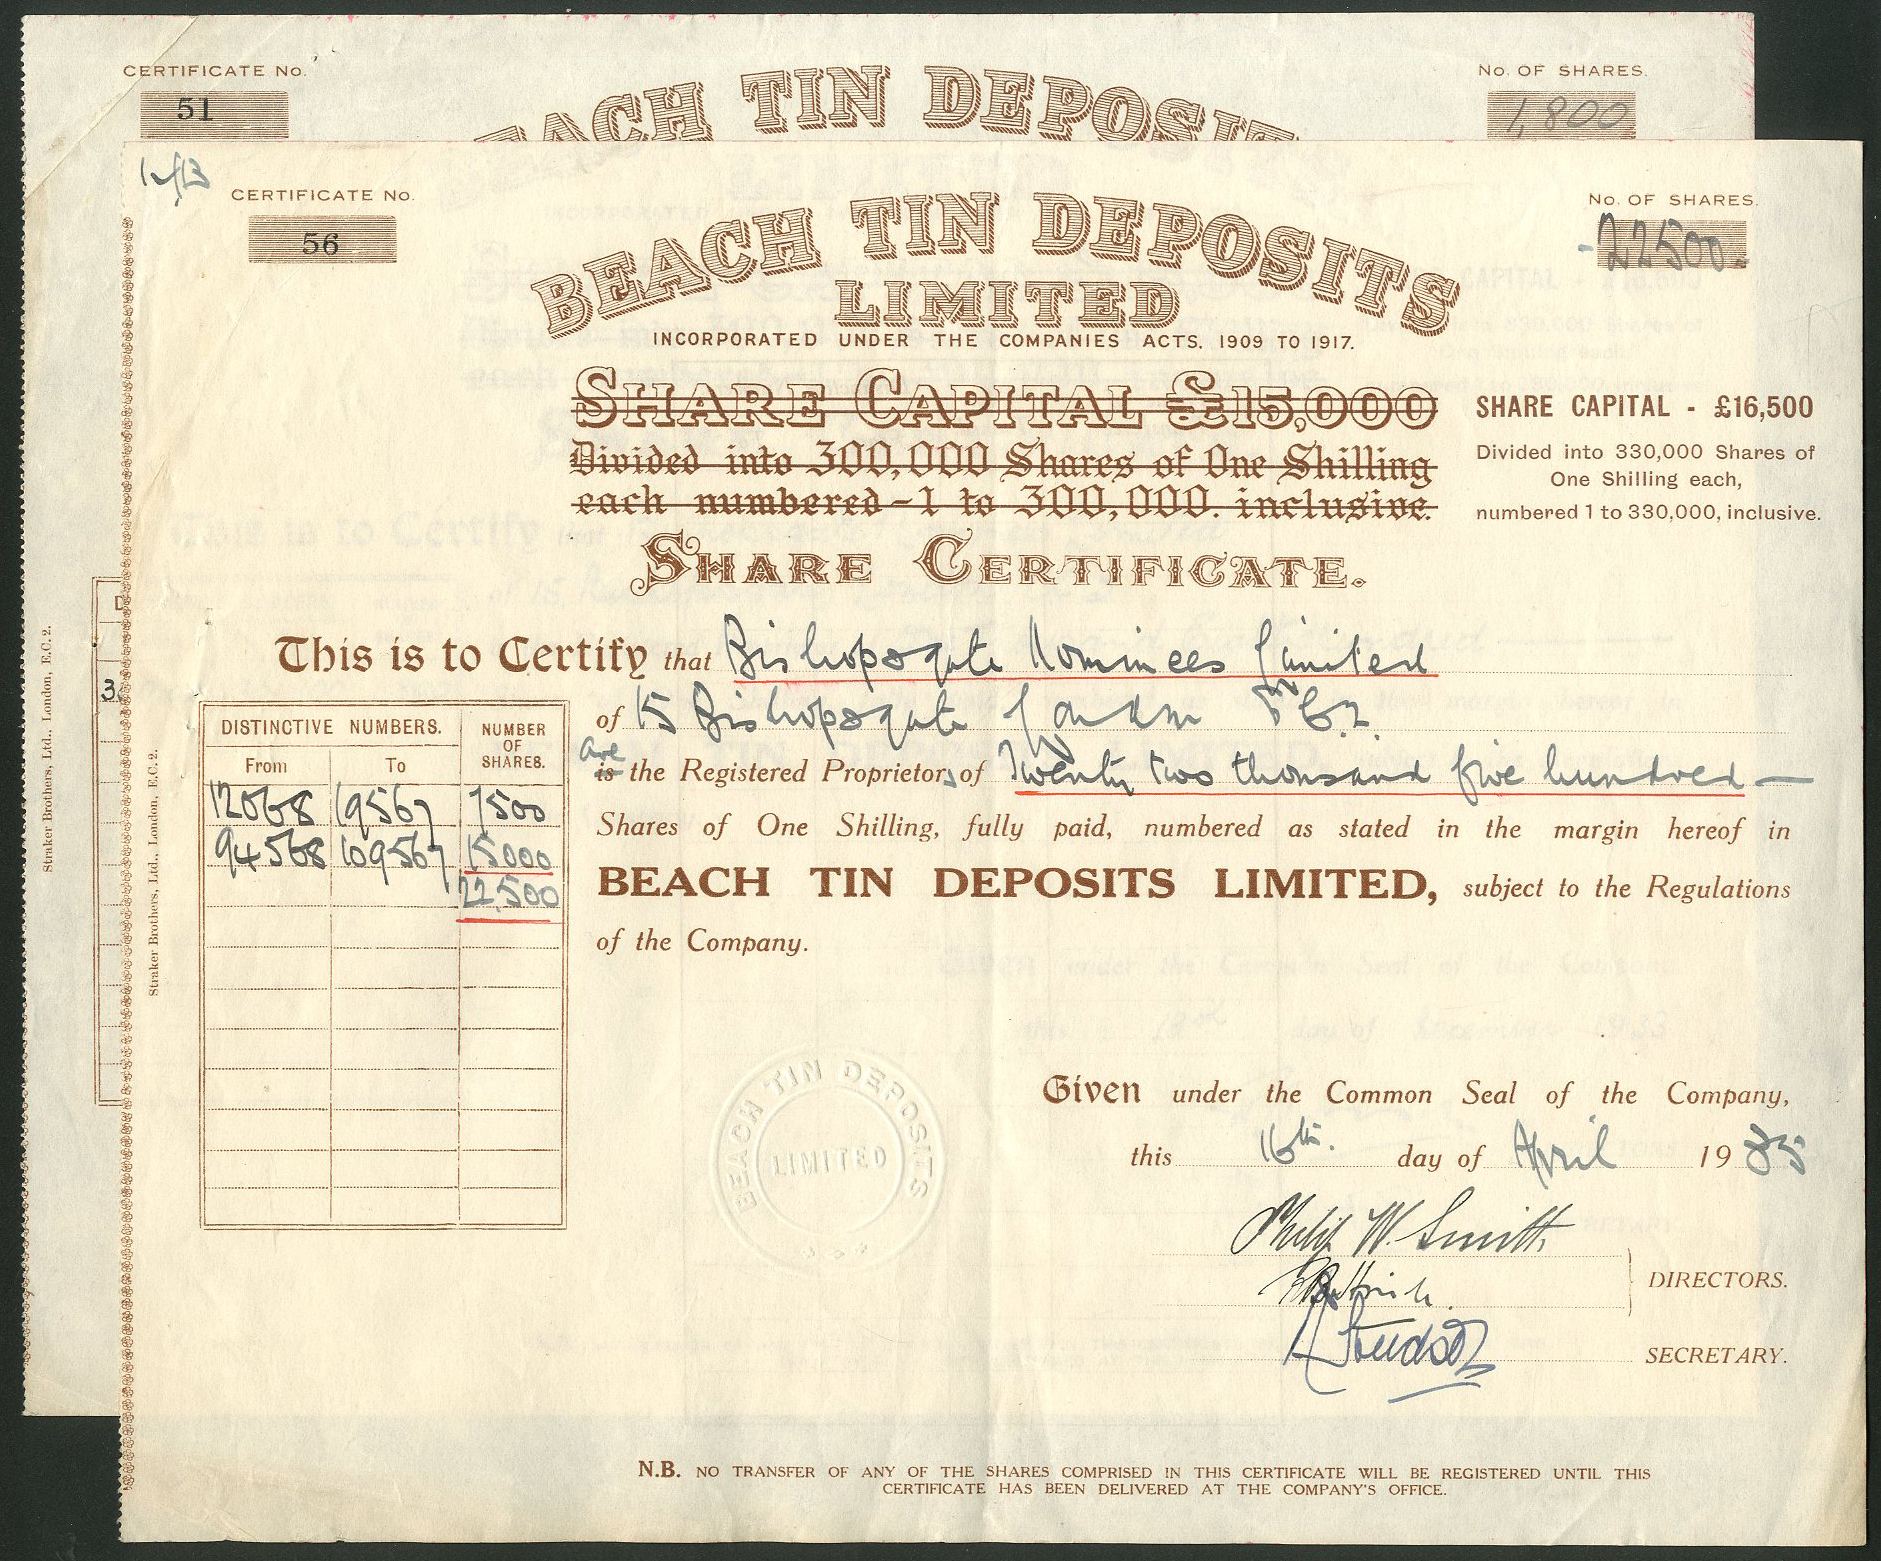 CERTIFICATE No.
51
No. OF SHARES.
1,800
BEACH TIN DEPOSITS
CERTIFICATE No.
56
No. OF SHARES.
22500.
BEACH TIN DEPOSITS
LIMITED
INCORPORATED UNDER THE COMPANIES ACTS, 1909 TO 1917.
SHARE CAPITAL £15,000
Divided into 300,000 Shares of One Shilling
each numbered - 1 to 300,000. inclusive.
SHARE CAPITAL - £16,500
Divided into 330,000 Shares of
One Shilling each,
numbered 1 to 330,000, inclusive.
SHARE CERTIFICATE.
This is to Certify that Bishopsgate Nominees Limited
of 15 Bishopsgate London E.C.2.
are
is the Registered Proprietors of Twenty two thousand five hundred —
Shares of One Shilling, fully paid, numbered as stated in the margin hereof in
BEACH TIN DEPOSITS LIMITED, subject to the Regulations
of the Company.
DISTINCTIVE NUMBERS. NUMBER OF SHARES.
From To
12068 19567 7500
94568 109567 15000
22,500
3
Straker Brothers, Ltd., London, E.C.2.
Straker Brothers, Ltd., London, E.C.2.
BEACH TIN DEPOSITS
LIMITED
Given under the Common Seal of the Company,
this 16th. day of April 1935
Philip W. Smith
DIRECTORS.
SECRETARY.
N.B. NO TRANSFER OF ANY OF THE SHARES COMPRISED IN THIS CERTIFICATE WILL BE REGISTERED UNTIL THIS
CERTIFICATE HAS BEEN DELIVERED AT THE COMPANY'S OFFICE.